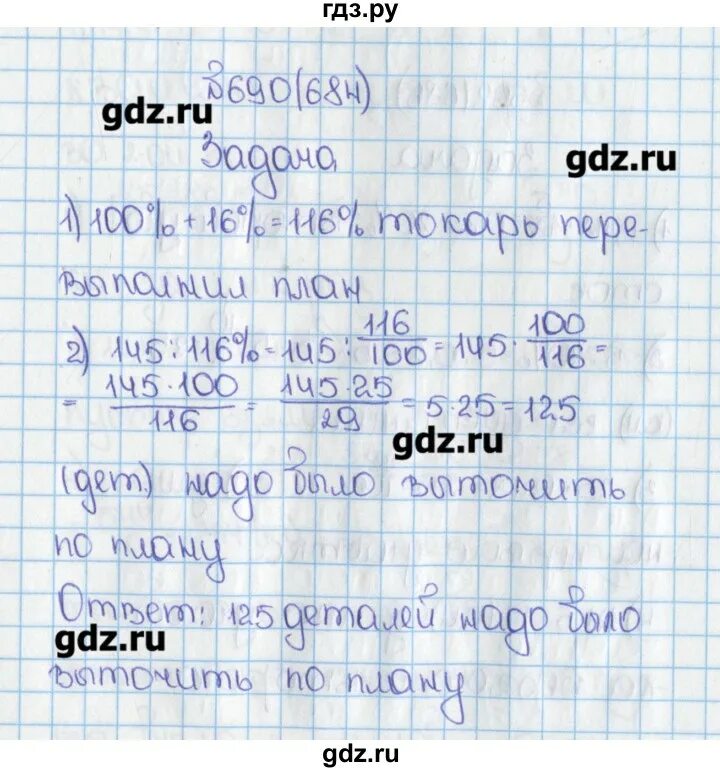 гдз.ру
№690(684)
gdz.ru
Задача
gdz.ru
1) 100% + 16% = 116% токарь пере-
выполнил план
2) 145 : 116% = 145 : 116/100 = 145 · 100/116 =
= 145·100/116 = 145·25/29 = 5·25 = 125
gdz.ru
(дет) надо было выточить
по плану
Ответ: 125 деталей надо было
gdz.ru
выточить по плану
gdz.ru